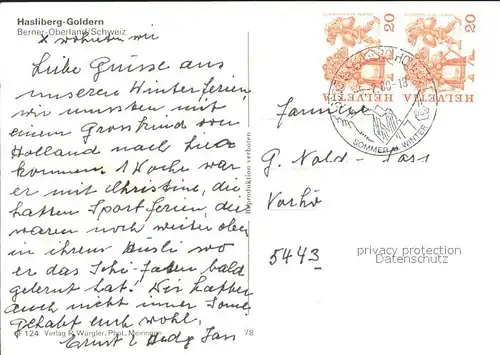 Hasliberg-Goldern
Berner-Oberland/Schweiz
x wohnten wir
Liebe Grüsse aus
unseren Winterferien,
wir mussten mit
einem Grosskind von
Holland nach hier
kommen. 1 Woche war
er mit Christine, die
hatten Sportferien, die
waren noch weiter oben
in ihrem Hüsli wo
er das Schi-fahren bald
gelernt hat! Wir hatten
auch nicht immer Sonne
gehabt euch wohl.
Ernst & Hedy
F 124 Verlag P. Würgler, Phot., Meiringen 78
Reproduktion verboten
HELVETIA 20
HELVETIA 20
SOMMER WINTER
Familie
G. Nold-
5443
privacy protection
Datenschutz